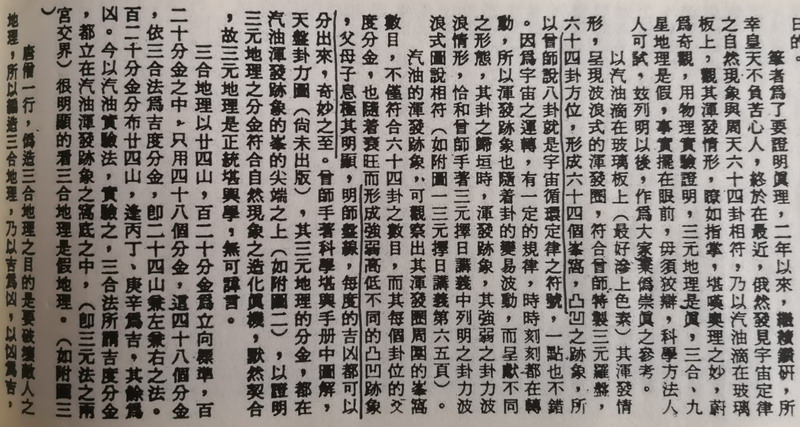 目的。
筆者爲了要證明眞理，二年以來，繼續鑽硏，所
幸皇天不負苦心人，終於在最近，俄然發見宇宙定律
之自然現象與周天六十四卦相符，乃以汽油滴在玻璃
板上，觀其渾發情形，瞭如指掌，堪嘆奧理之妙，蔚
爲奇觀，用物理實驗證明，三元地理是眞，三合、九
星地理是假，事實擺在眼前，毋須狡辯，科學方法人
人可試，玆列明以後，作爲大家棄僞崇眞之參考。
以汽油滴在玻璃板上（最好滲上色素）其渾發情
形，呈現波浪式的渾發圈，符合曾師特製三元羅盤，
六十四卦方位，形成六十四個峯窩，凸凹之跡象，所
以曾師說八卦就是宇宙循環定律之符號，一點也不錯
。因爲宇宙之運轉，有一定的規律，時時刻刻都在轉
動，所以渾發跡象也隨着卦的變易波動，而呈獻不同
之形態，其卦之歸垣時，渾發跡象，其強弱之卦力波
浪情形，恰和曾師手著三元擇日講義中列明之卦力波
浪式圖說相符（如附圖一三元擇日講義第六五頁）。
汽油的渾發跡象，可觀察出其渾發圈周圍的峯窩
數目，不僅符合六十四卦之數目，而其每個卦位的父
度分金，也隨着衰旺而形成強弱高低不同的凸凹跡象
，父母子息極其明顯，明師盤線，每度的吉凶都可以
分出來，奇妙之至。曾師手著科學堪輿手册中圖解，
天盤卦力圖（尙未出版），其三元地理的分金，都在
汽油渾發跡象的峯的尖端之上（如附圖二），以證明
三元地理之分金符合自然現象之造化眞機，默然契合
，故三元地理是正統堪輿學，無可諱言。
三合地理以廿四山，百二十分金爲立向標準，百
二十分金之中，只用四十八個分金，這四十八個分金
，依三合法爲吉度分金，卽二十四山兼左兼右之法。
百二十分金分布廿四山，逢丙丁、庚辛爲吉，其餘爲
凶。今以汽油實驗法，實驗之，三合法所謂吉度分金
，都立在汽油渾發跡象之窩底之中，（卽三元法之兩
宮交界）很明顯的看三合地理是假地理。（如附圖三
唐僧一行，僞造三合地理之目的是要破壞敵人之
地理，所以編造三合地理，乃以吉爲凶，以凶爲吉，